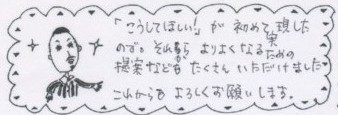 「こうしてほしい!」が 初めて実現した
ので。それが よりよくなるための
提案なども たくさん いただけました
これからも よろしくお願いします。